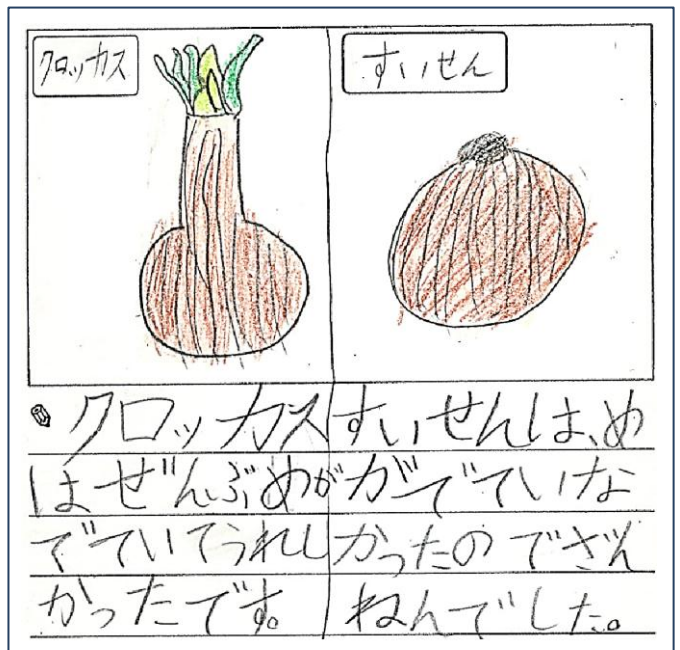 クロッカス
すいせん
クロッカス
はぜんぶめが
でていてうれし
かったです。
すいせんは、め
がでていな
かったのでざん
ねんでした。